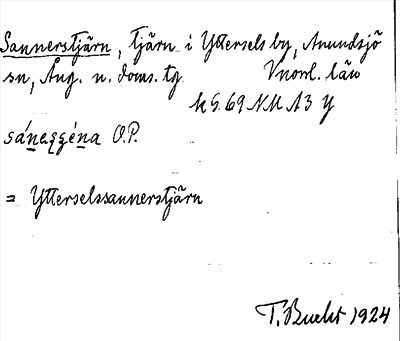 Sannerstjärn, tjärn i Yttersels by, Anundsjö
sn, Ång. n. doms. tg Vnorrl. län
KG. 69 NM A3 y
O.P.
= Ytterselssannerstjärn
T. Bucht 1924